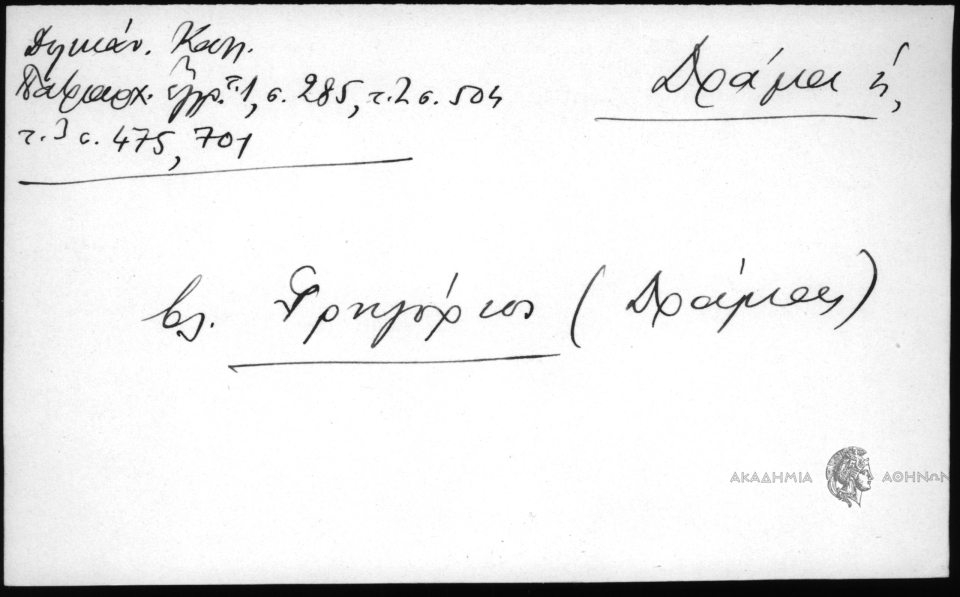 Δράμα ἡ,
Δηλικάν. Καλ.
Πατριαρχ. ἔγγρ. τ. 1, σ. 285, τ. 2 σ. 504
τ. 3 σ. 475, 701
βλ. Γρηγόριος (Δράμας)
ΑΚΑΔΗΜΙΑ ΑΘΗΝΩΝ